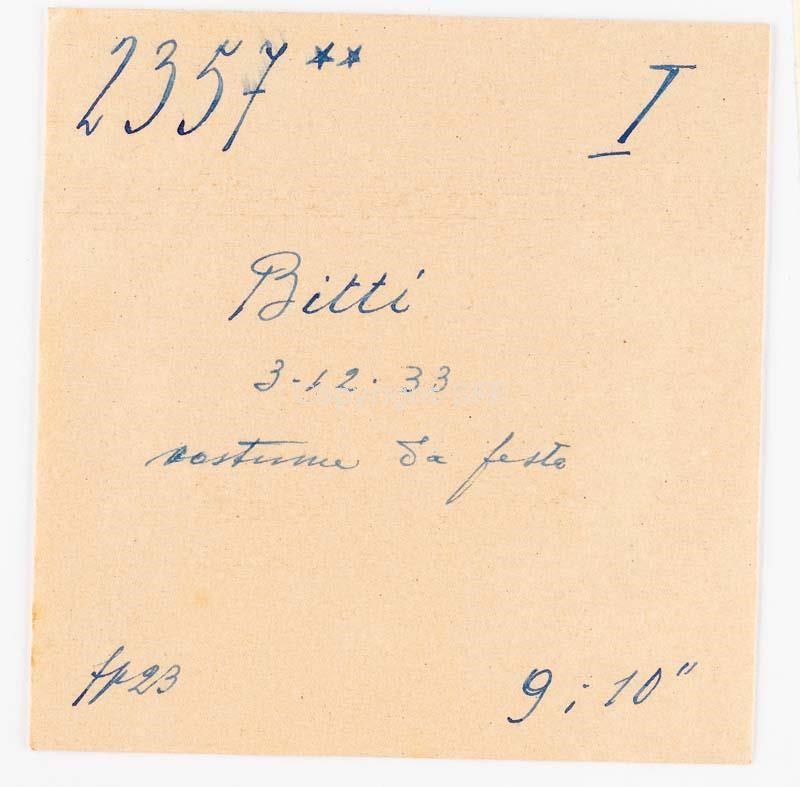 2357** I
Bitti
3.12.33
costume da festa
fp 23 9 i 10"